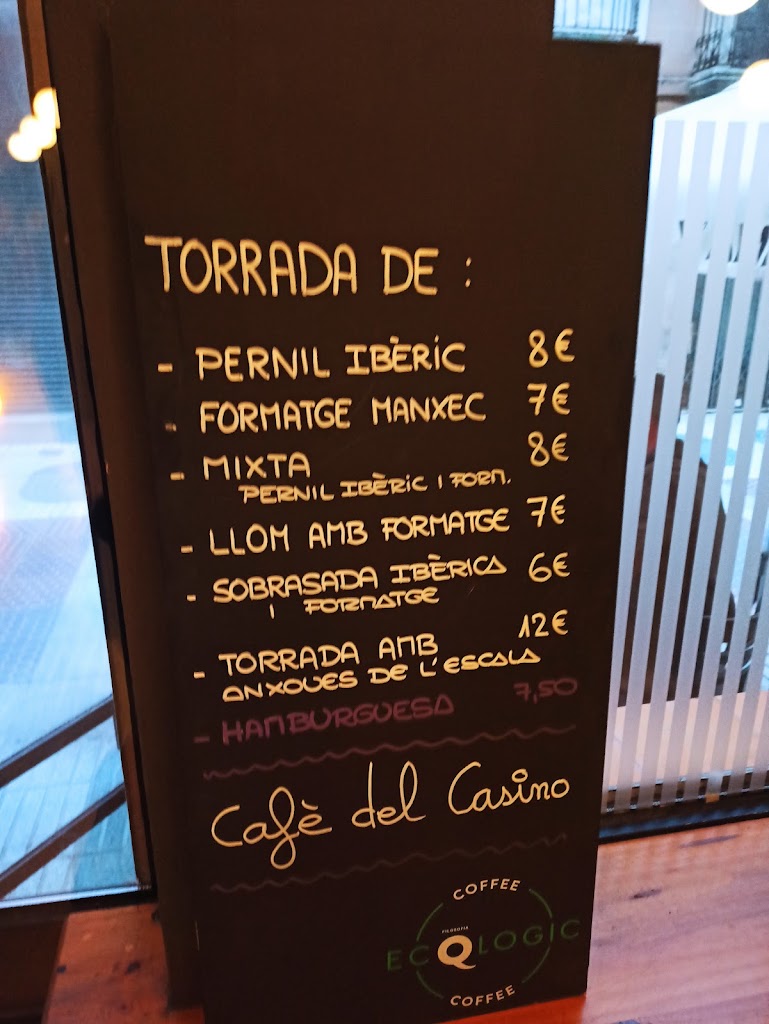 TORRADA DE :
- PERNIL IBÈRIC 8€
- FORMATGE MANXEC 7€
- MIXTA 8€
PERNIL IBÈRIC I FORM.
- LLOM AMB FORMATGE 7€
- SOBRASADA IBÈRICA 6€
I FORMATGE
- TORRADA AMB 12€
ANXOVES DE L'ESCALA
- HAMBURGUESA 7,50
Cafè del Casino
COFFEE
FILOSOFIA
ECOLOGIC
COFFEE